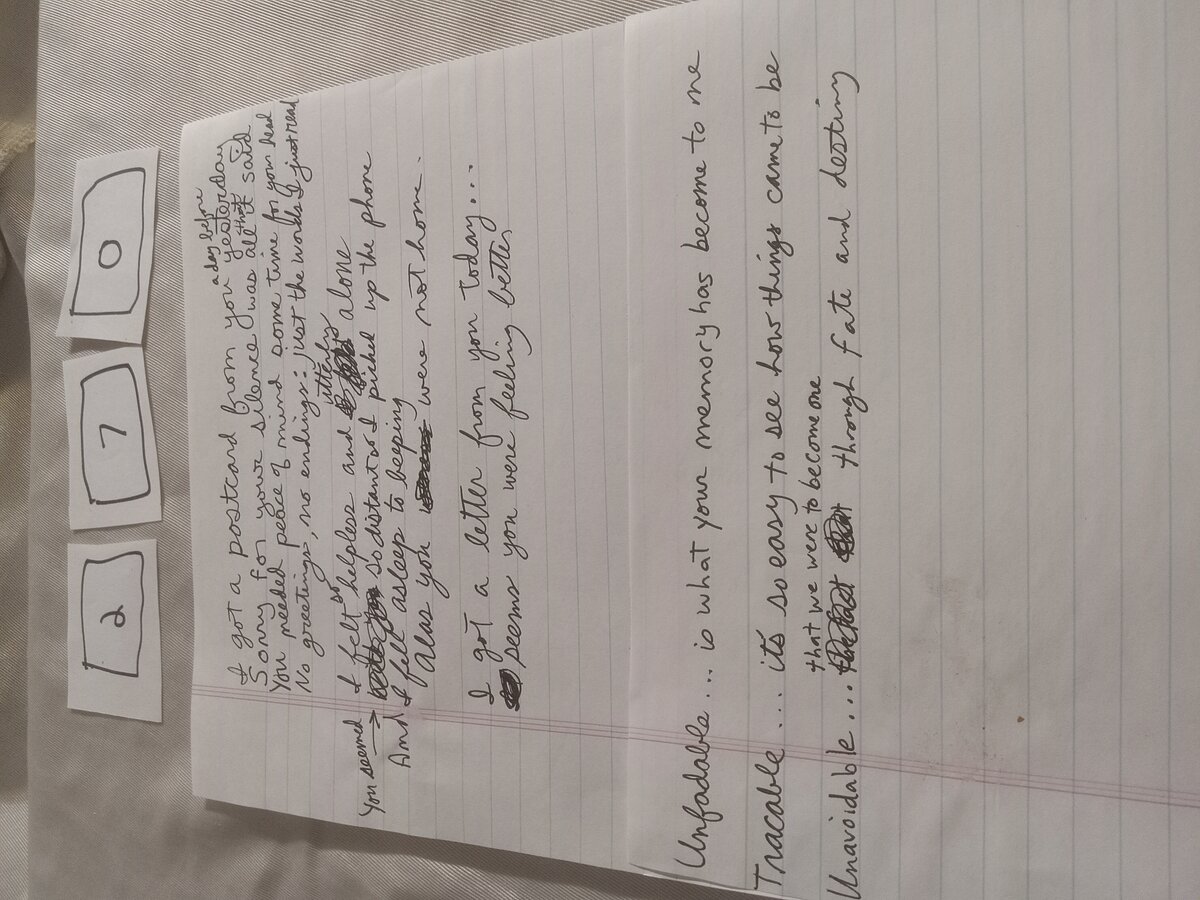 2 7 0
a day before
I got a postcard from you yesterday
Sorry for your silence was all that it said
You needed peace of mind some time for your head
No greetings, no endings: just the words I just read
so utterly
I felt helpless and alone
You seemed → so distant as I picked up the phone
And I fell asleep to beeping
Alas you were not home.
I got a letter from you today...
seems you were feeling better
Unfadable... is what your memory has become to me
Tracable... its so easy to see how things came to be
that we were to become one
Unavoidable... through fate and destiny